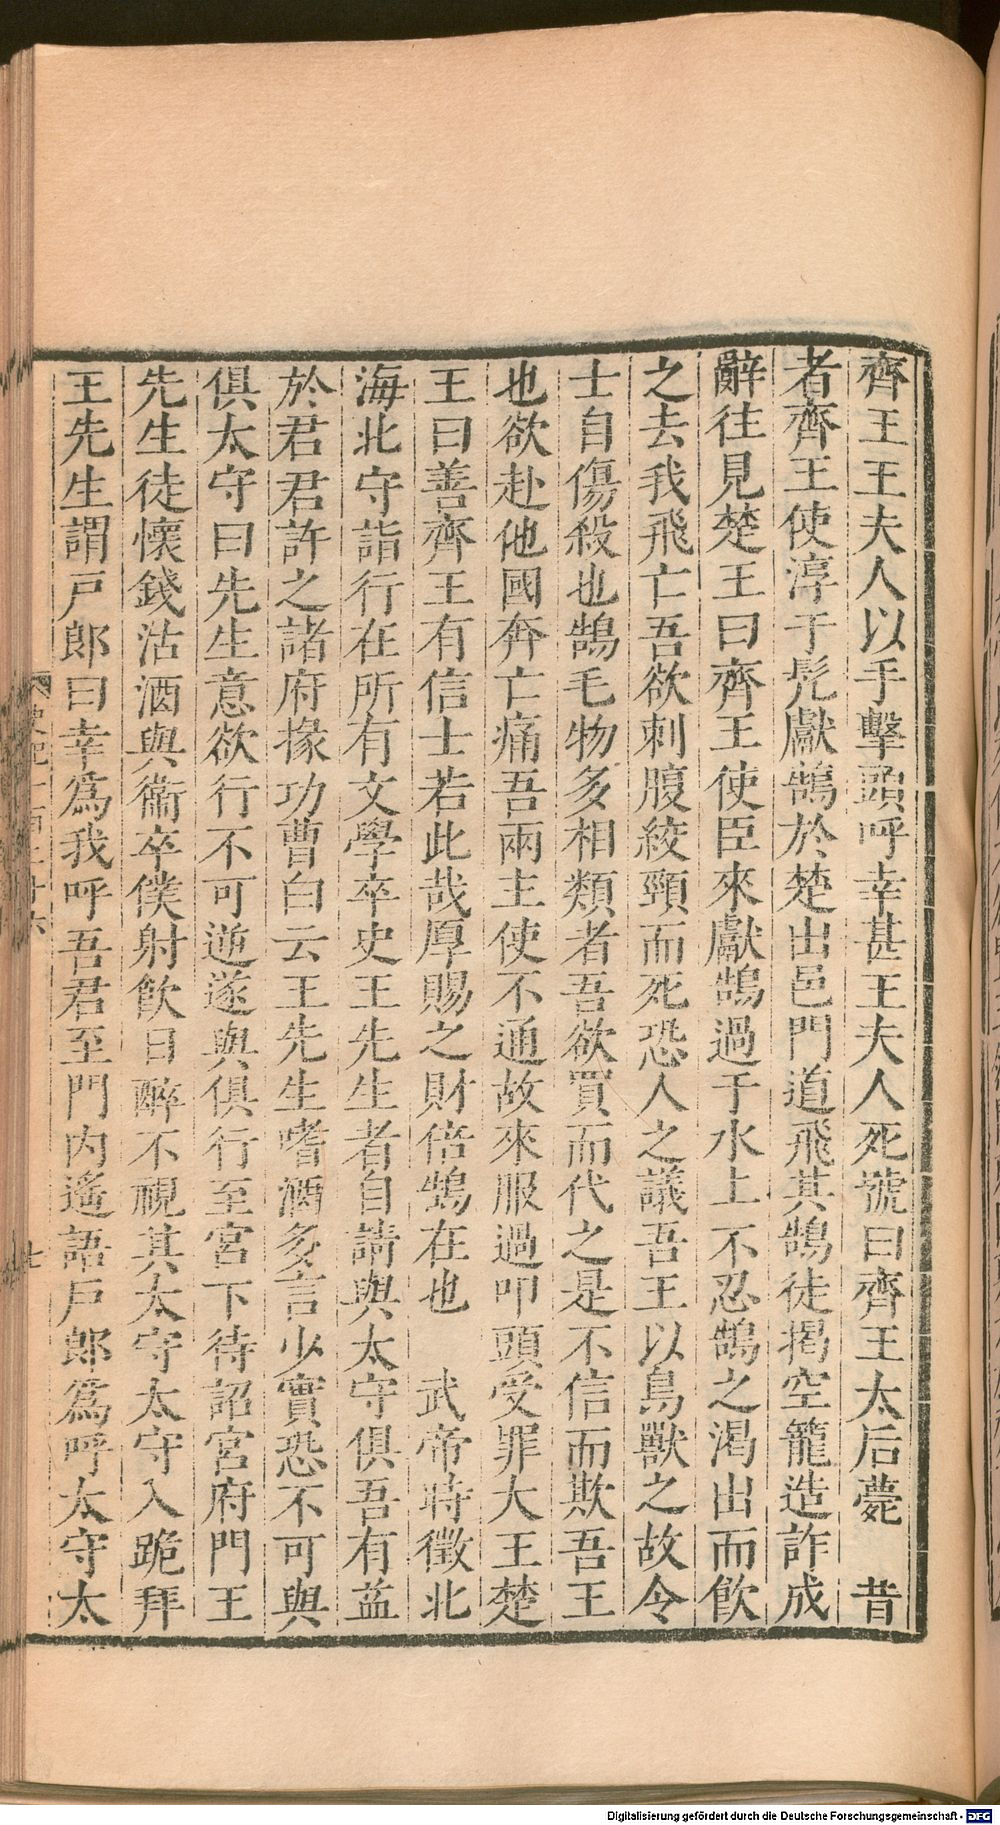 齊王王夫人以手擊頭呼幸甚王夫人死號曰齊王太后薨　昔
者齊王使淳于髡獻鵠於楚出邑門道飛其鵠徒揭空籠造詐成
辭往見楚王曰齊王使臣來獻鵠過于水上不忍鵠之渴出而飮
之去我飛亡吾欲刺腹絞頸而死恐人之議吾王以鳥獸之故令
士自傷殺也鵠毛物多相類者吾欲買而代之是不信而欺吾王
也欲赴他國奔亡痛吾兩主使不通故來服過叩頭受罪大王楚
王曰善齊王有信士若此哉厚賜之財倍鵠在也　武帝時徵北
海北守詣行在所有文學卒史王先生者自請與太守俱吾有益
於君君許之諸府掾功曹白云王先生嗜酒多言少實恐不可與
俱太守曰先生意欲行不可逆遂與俱行至宮下待詔宮府門王
先生徒懷錢沽酒與衞卒僕射飮日醉不視其太守太守入跪拜
王先生謂戸郎曰幸爲我呼吾君至門內遙語戸郎爲呼太守太
Digitalisierung gefördert durch die Deutsche Forschungsgemeinschaft - DFG